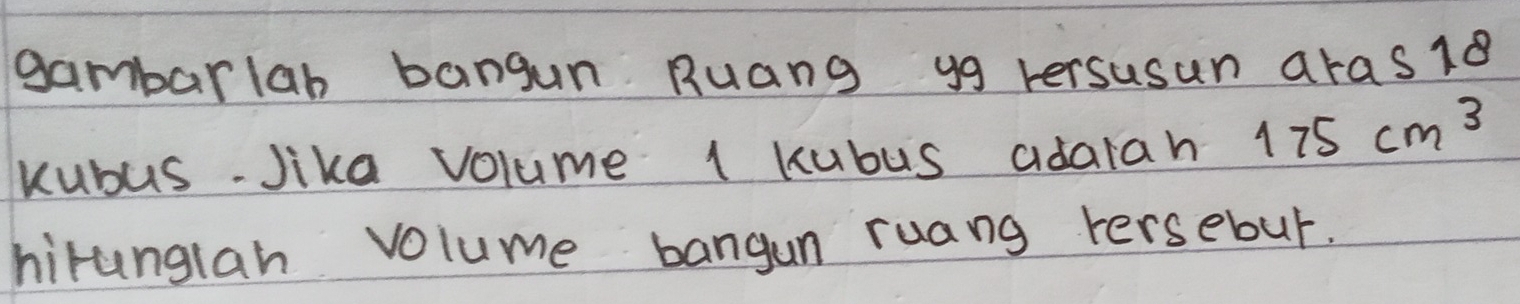 gambarlah bangun Ruang yg tersusun atas 18
kubus. Jika Volume 1 kubus adalah 175 cm³
hitunglah Volume bangun ruang tersebut.